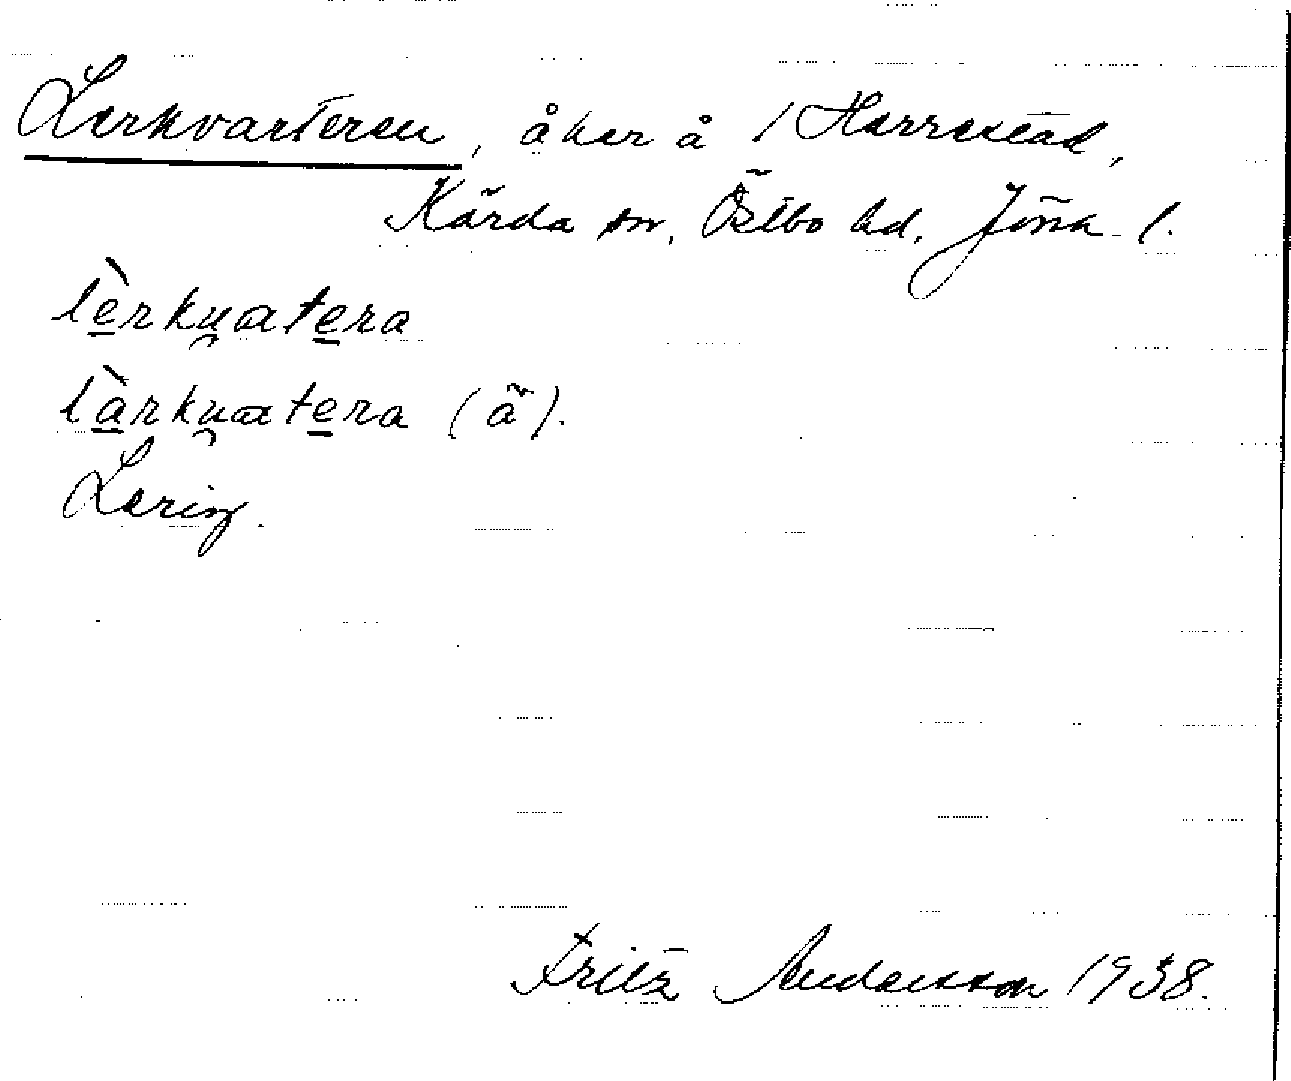 Lerkvarteren, åker å 1 Harrestad,
Kärda sn, Östbo hd, Jönk. l.
lèrku̯atera
làrku̯atera (ã).
Lerig.
Fritz Andersson 1938.